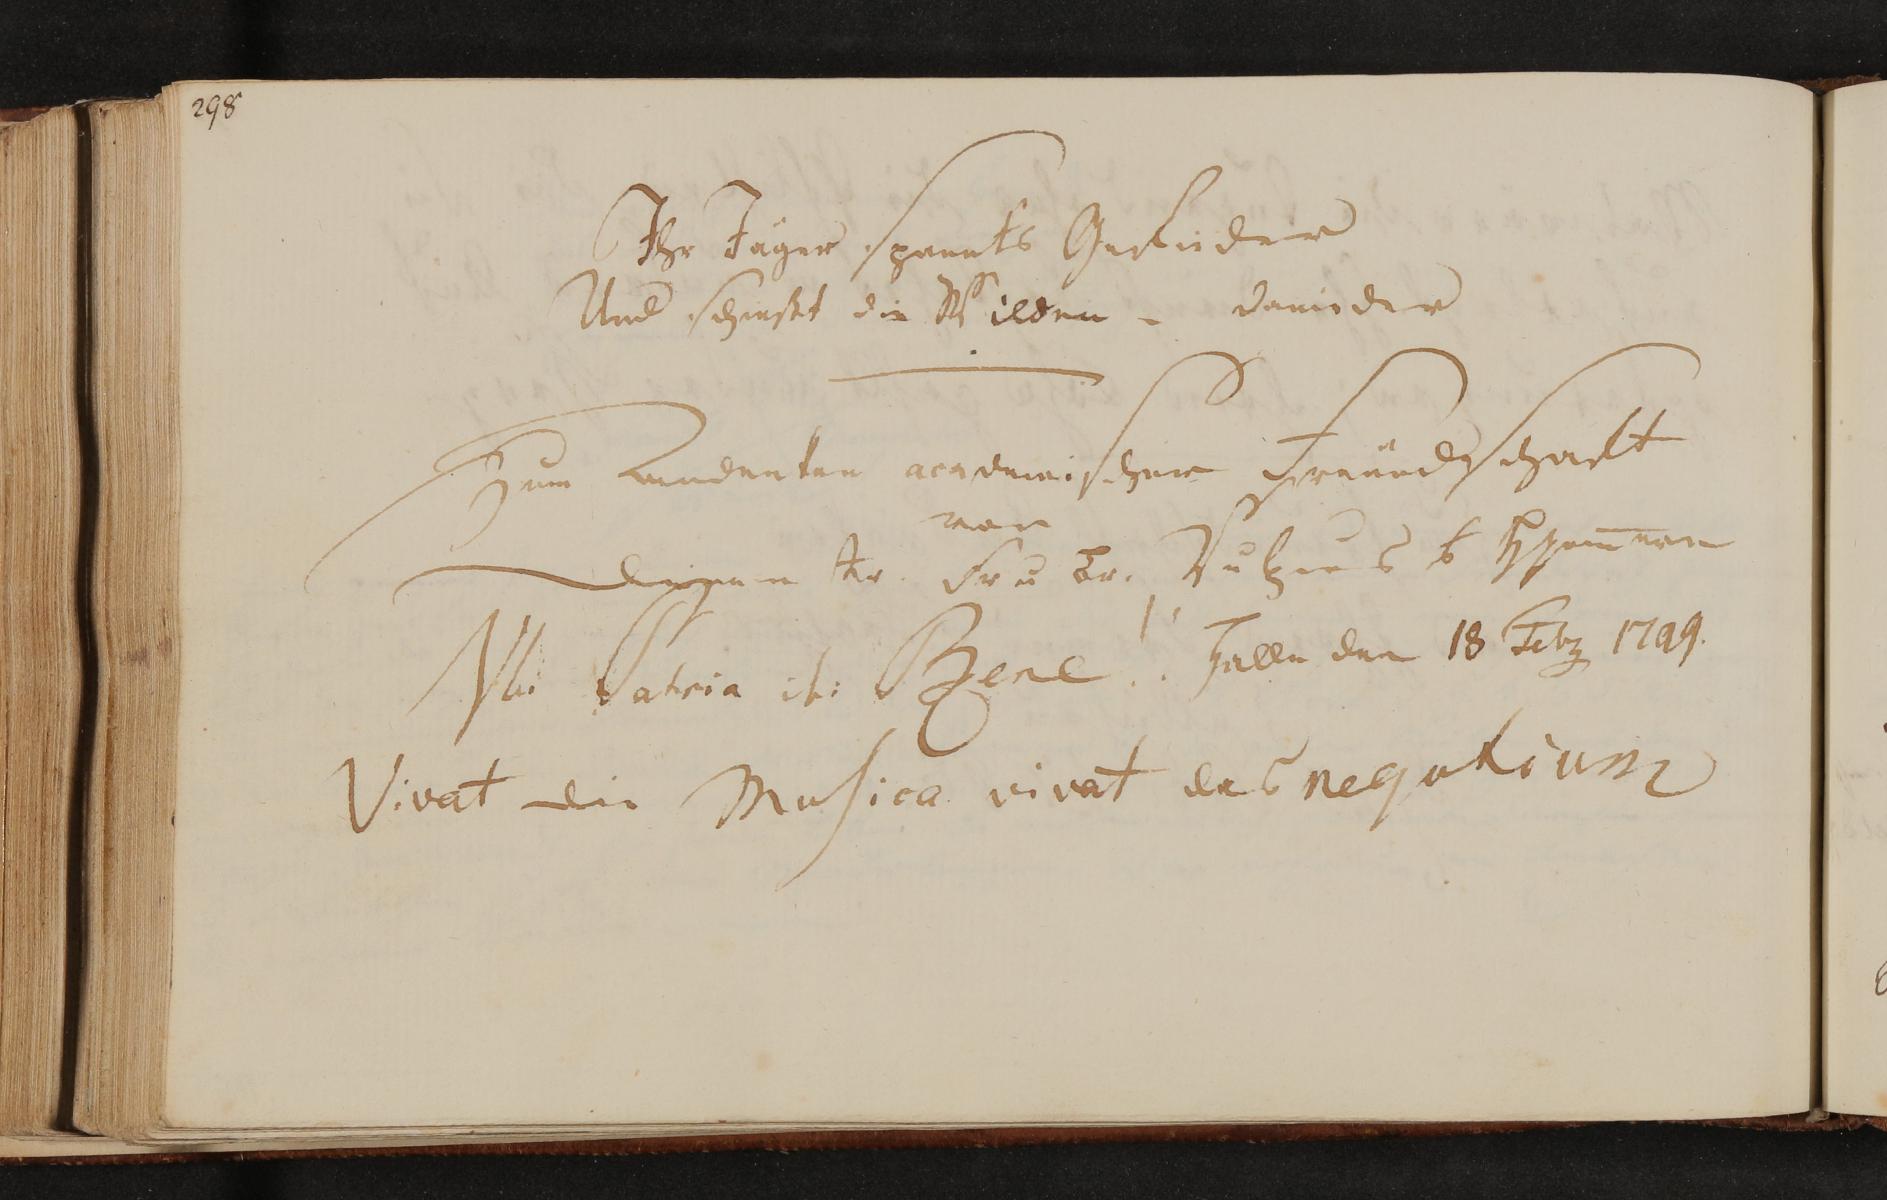 298
Ihr Jäger spannts Gefieder
Und schießt die Wilden - danieder
Zum Andenken academischer Freündschafft
von
deinem tr. Fr u Br.
Ubi Patria ibi Bene !! Halle den 18 Febr 1799.
Vivat die Musica vivat das negotium